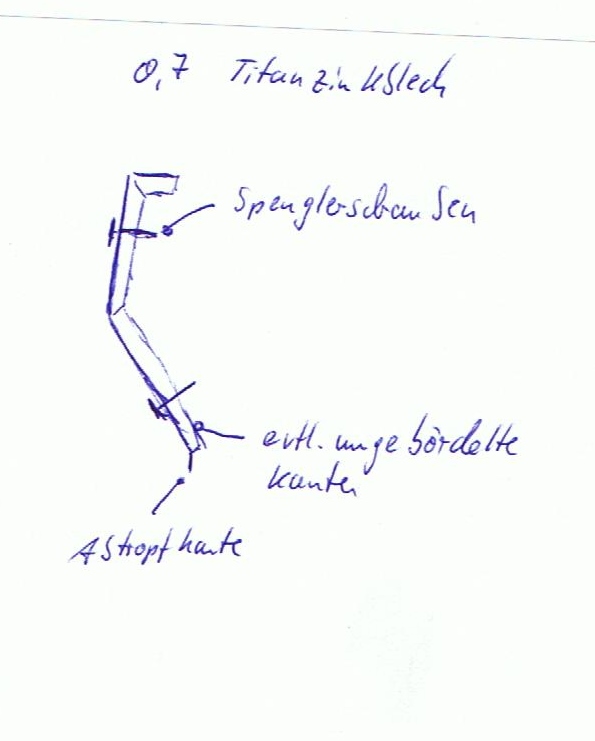 0,7 Titanzinkblech
Spenglerschrauben
evtl. umgebördelte
Kanten
Abtropfkante